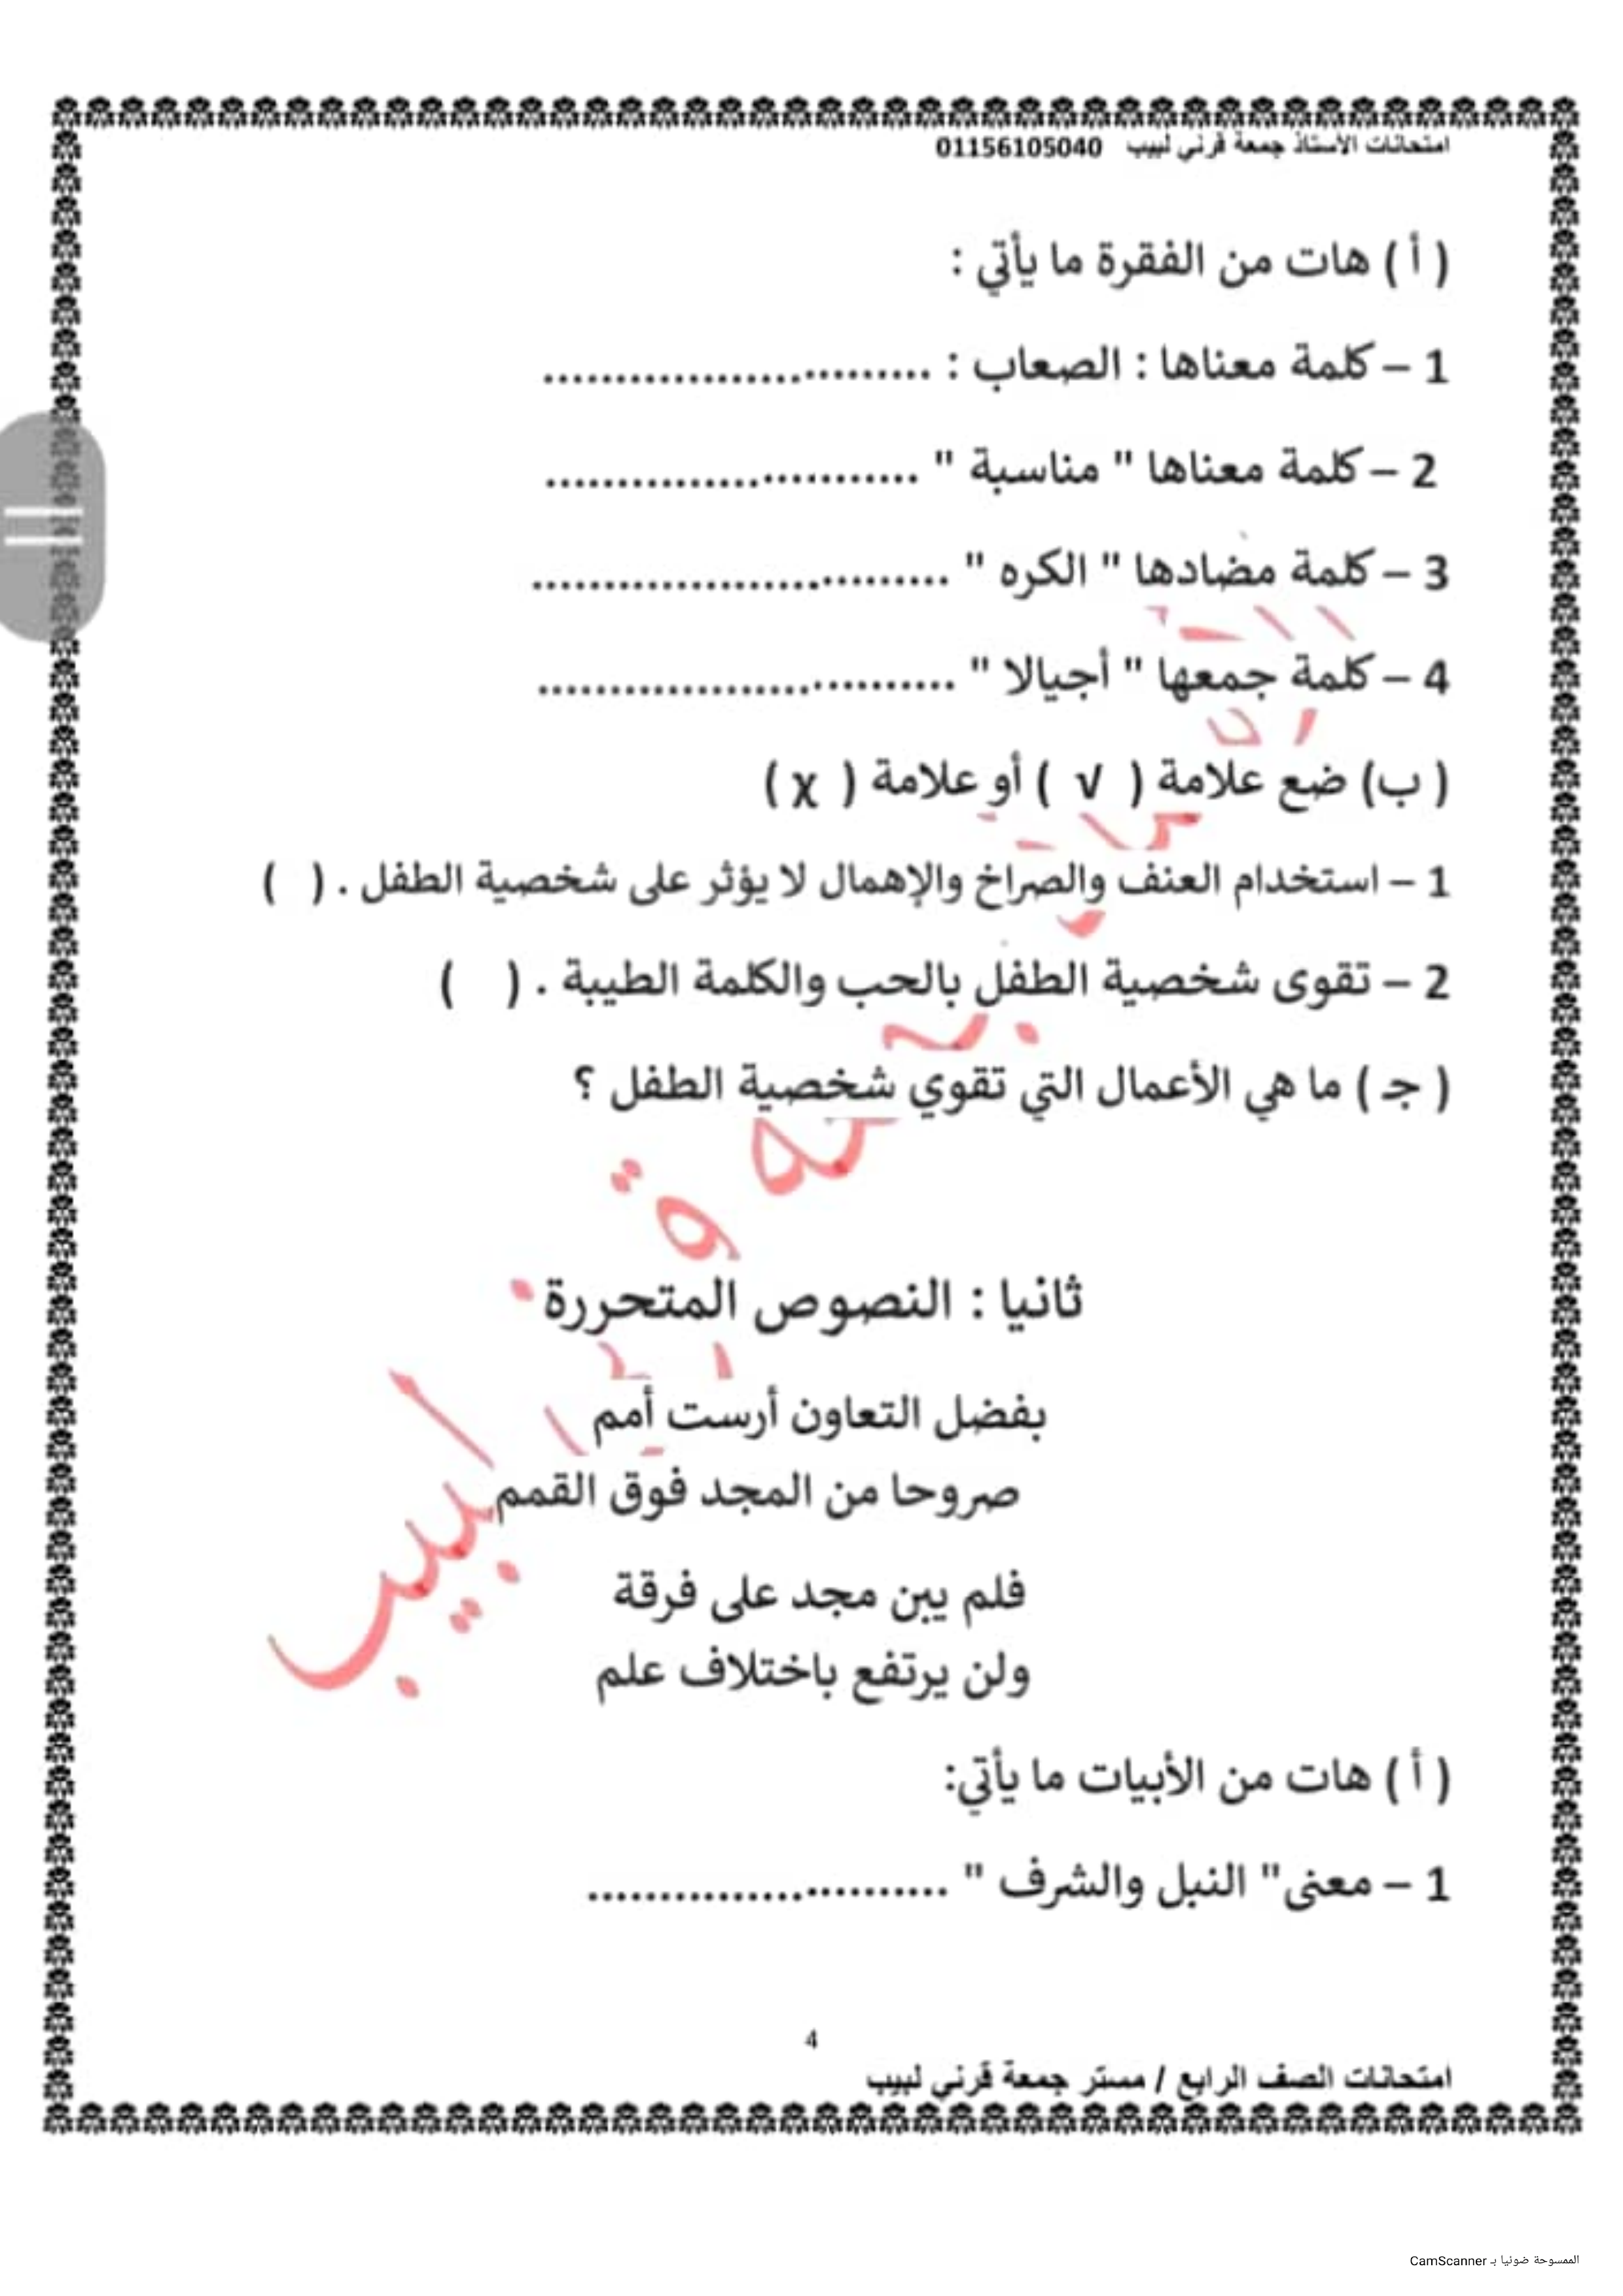 امتحانات الأستاذ جمعة قرني لبيب 01156105040
( أ ) هات من الفقرة ما يأتي :
1 – كلمة معناها : الصعاب : ...........................
2 – كلمة معناها " مناسبة " ..........................
3 – كلمة مضادها " الكره " .............................
4 – كلمة جمعها " أجيالا " .............................
( ب) ضع علامة ( √ ) أو علامة ( χ )
1 – استخدام العنف والصراخ والإهمال لا يؤثر على شخصية الطفل . ( )
2 – تقوى شخصية الطفل بالحب والكلمة الطيبة . ( )
( جـ ) ما هي الأعمال التي تقوي شخصية الطفل ؟
ثانيا : النصوص المتحررة
بفضل التعاون أرست أمم
صروحا من المجد فوق القمم
فلم يبن مجد على فرقة
ولن يرتفع باختلاف علم
( أ ) هات من الأبيات ما يأتي:
1 – معنى" النبل والشرف " .........................
4
امتحانات الصف الرابع / مستر جمعة قرني لبيب
الممسوحة ضوئيا بـ CamScanner